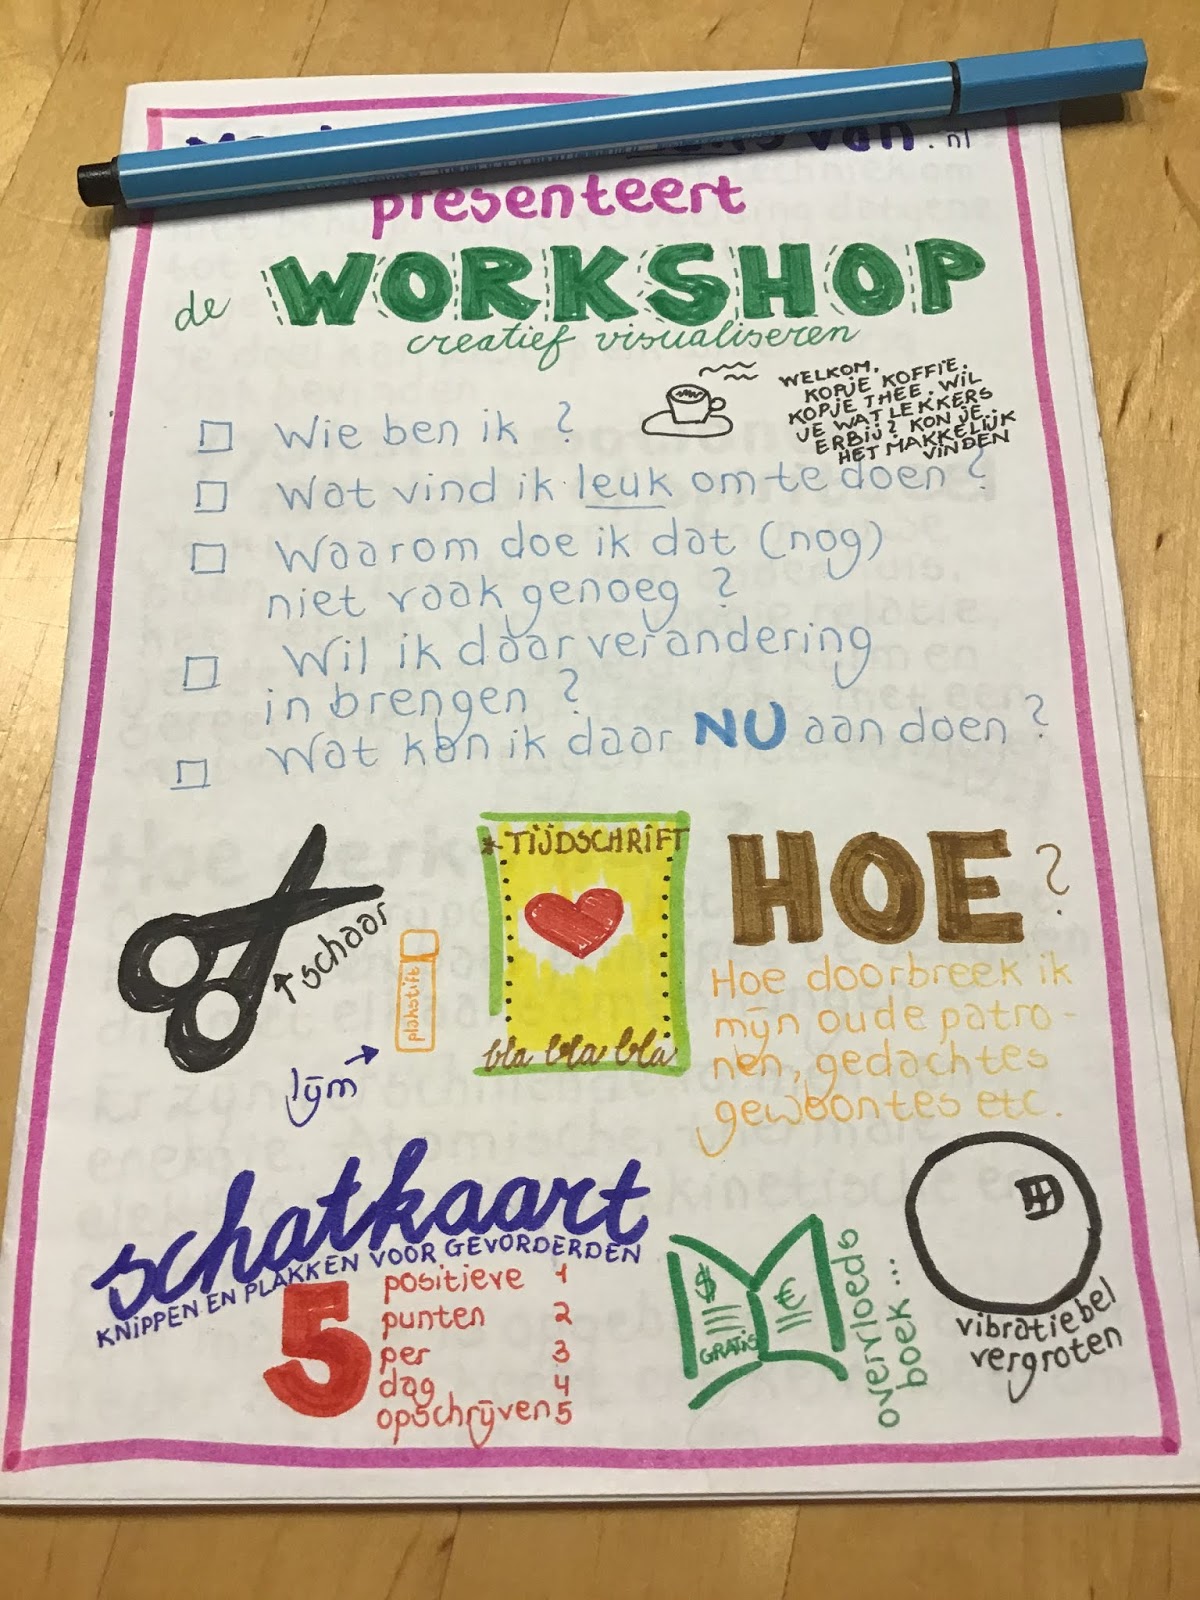 van.nl
presenteert
de WORKSHOP
creatief visualiseren
WELKOM,
KOPJE KOFFIE,
KOPJE THEE. WIL
JE WAT LEKKERS
ERBIJ? KON JE
HET MAKKELIJK
VINDEN
Wie ben ik ?
Wat vind ik leuk om te doen ?
Waarom doe ik dat (nog)
niet vaak genoeg ?
Wil ik daar verandering
in brengen ?
Wat kan ik daar NU aan doen ?
schaar
plakstift
lijm
*TIJDSCHRIFT
bla bla bla
HOE ?
Hoe doorbreek ik
mijn oude patro-
nen, gedachtes
gewoontes etc.
schatkaart
KNIPPEN EN PLAKKEN VOOR GEVORDERDEN
5 positieve 1
punten 2
per 3
dag 4
opschrijven 5
$
GRATIS
€
overvloeds
boek...
vibratiebel
vergroten